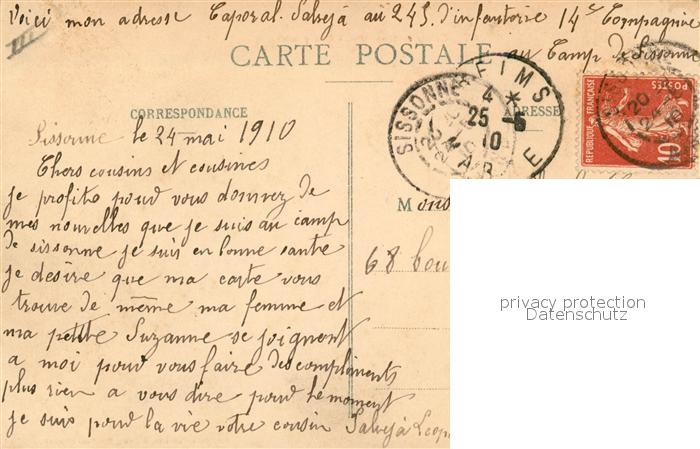 Voici mon adresse Caporal Salvejà au 245 d'infantrie 14e Compagnie
au Camp de Sissonne
CARTE POSTALE
CORRESPONDANCE
ADRESSE
REIMS
SISSONNE
25
10
RÉPUBLIQUE FRANÇAISE
POSTES
10
Sissonne le 24 mai 1910
Chers cousins et cousines
je profite pour vous donnez de
mes nouvelles que je suis au camp
de sissonne je suis en bonne sante
je desire que ma carte vous
trouve de même ma femme et
ma petite Suzanne se joignent
a moi pour vous faire des compliments
plus rien a vous dire pour le moment
je suis pour la vie votre cousin Salvejà Leop
Mons
68 bou
privacy protection
Datenschutz